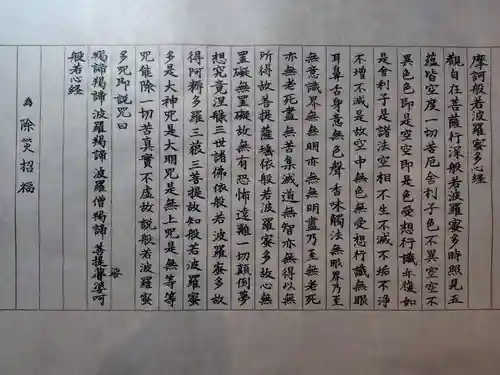 摩訶般若波羅蜜多心經
觀自在菩薩行深般若波羅蜜多時照見五
蘊皆空度一切苦厄舍利子色不異空空不
異色色即是空空即是色受想行識亦復如
是舍利子是諸法空相不生不滅不垢不淨
不增不減是故空中無色無受想行識無眼
耳鼻舌身意無色聲香味觸法無眼界乃至
無意識界無無明亦無無明盡乃至無老死
亦無老死盡無苦集滅道無智亦無得以無
所得故菩提薩埵依般若波羅蜜多故心無
罣礙無罣礙故無有恐怖遠離一切顛倒夢
想究竟涅槃三世諸佛依般若波羅蜜多故
得阿耨多羅三藐三菩提故知般若波羅蜜
多是大神咒是大明咒是無上咒是無等等
咒能除一切苦真實不虛故說般若波羅蜜
多咒即説咒曰
羯諦羯諦 波羅羯諦 波羅僧羯諦 菩提婆呵
娑
般若心經
為 除災招福